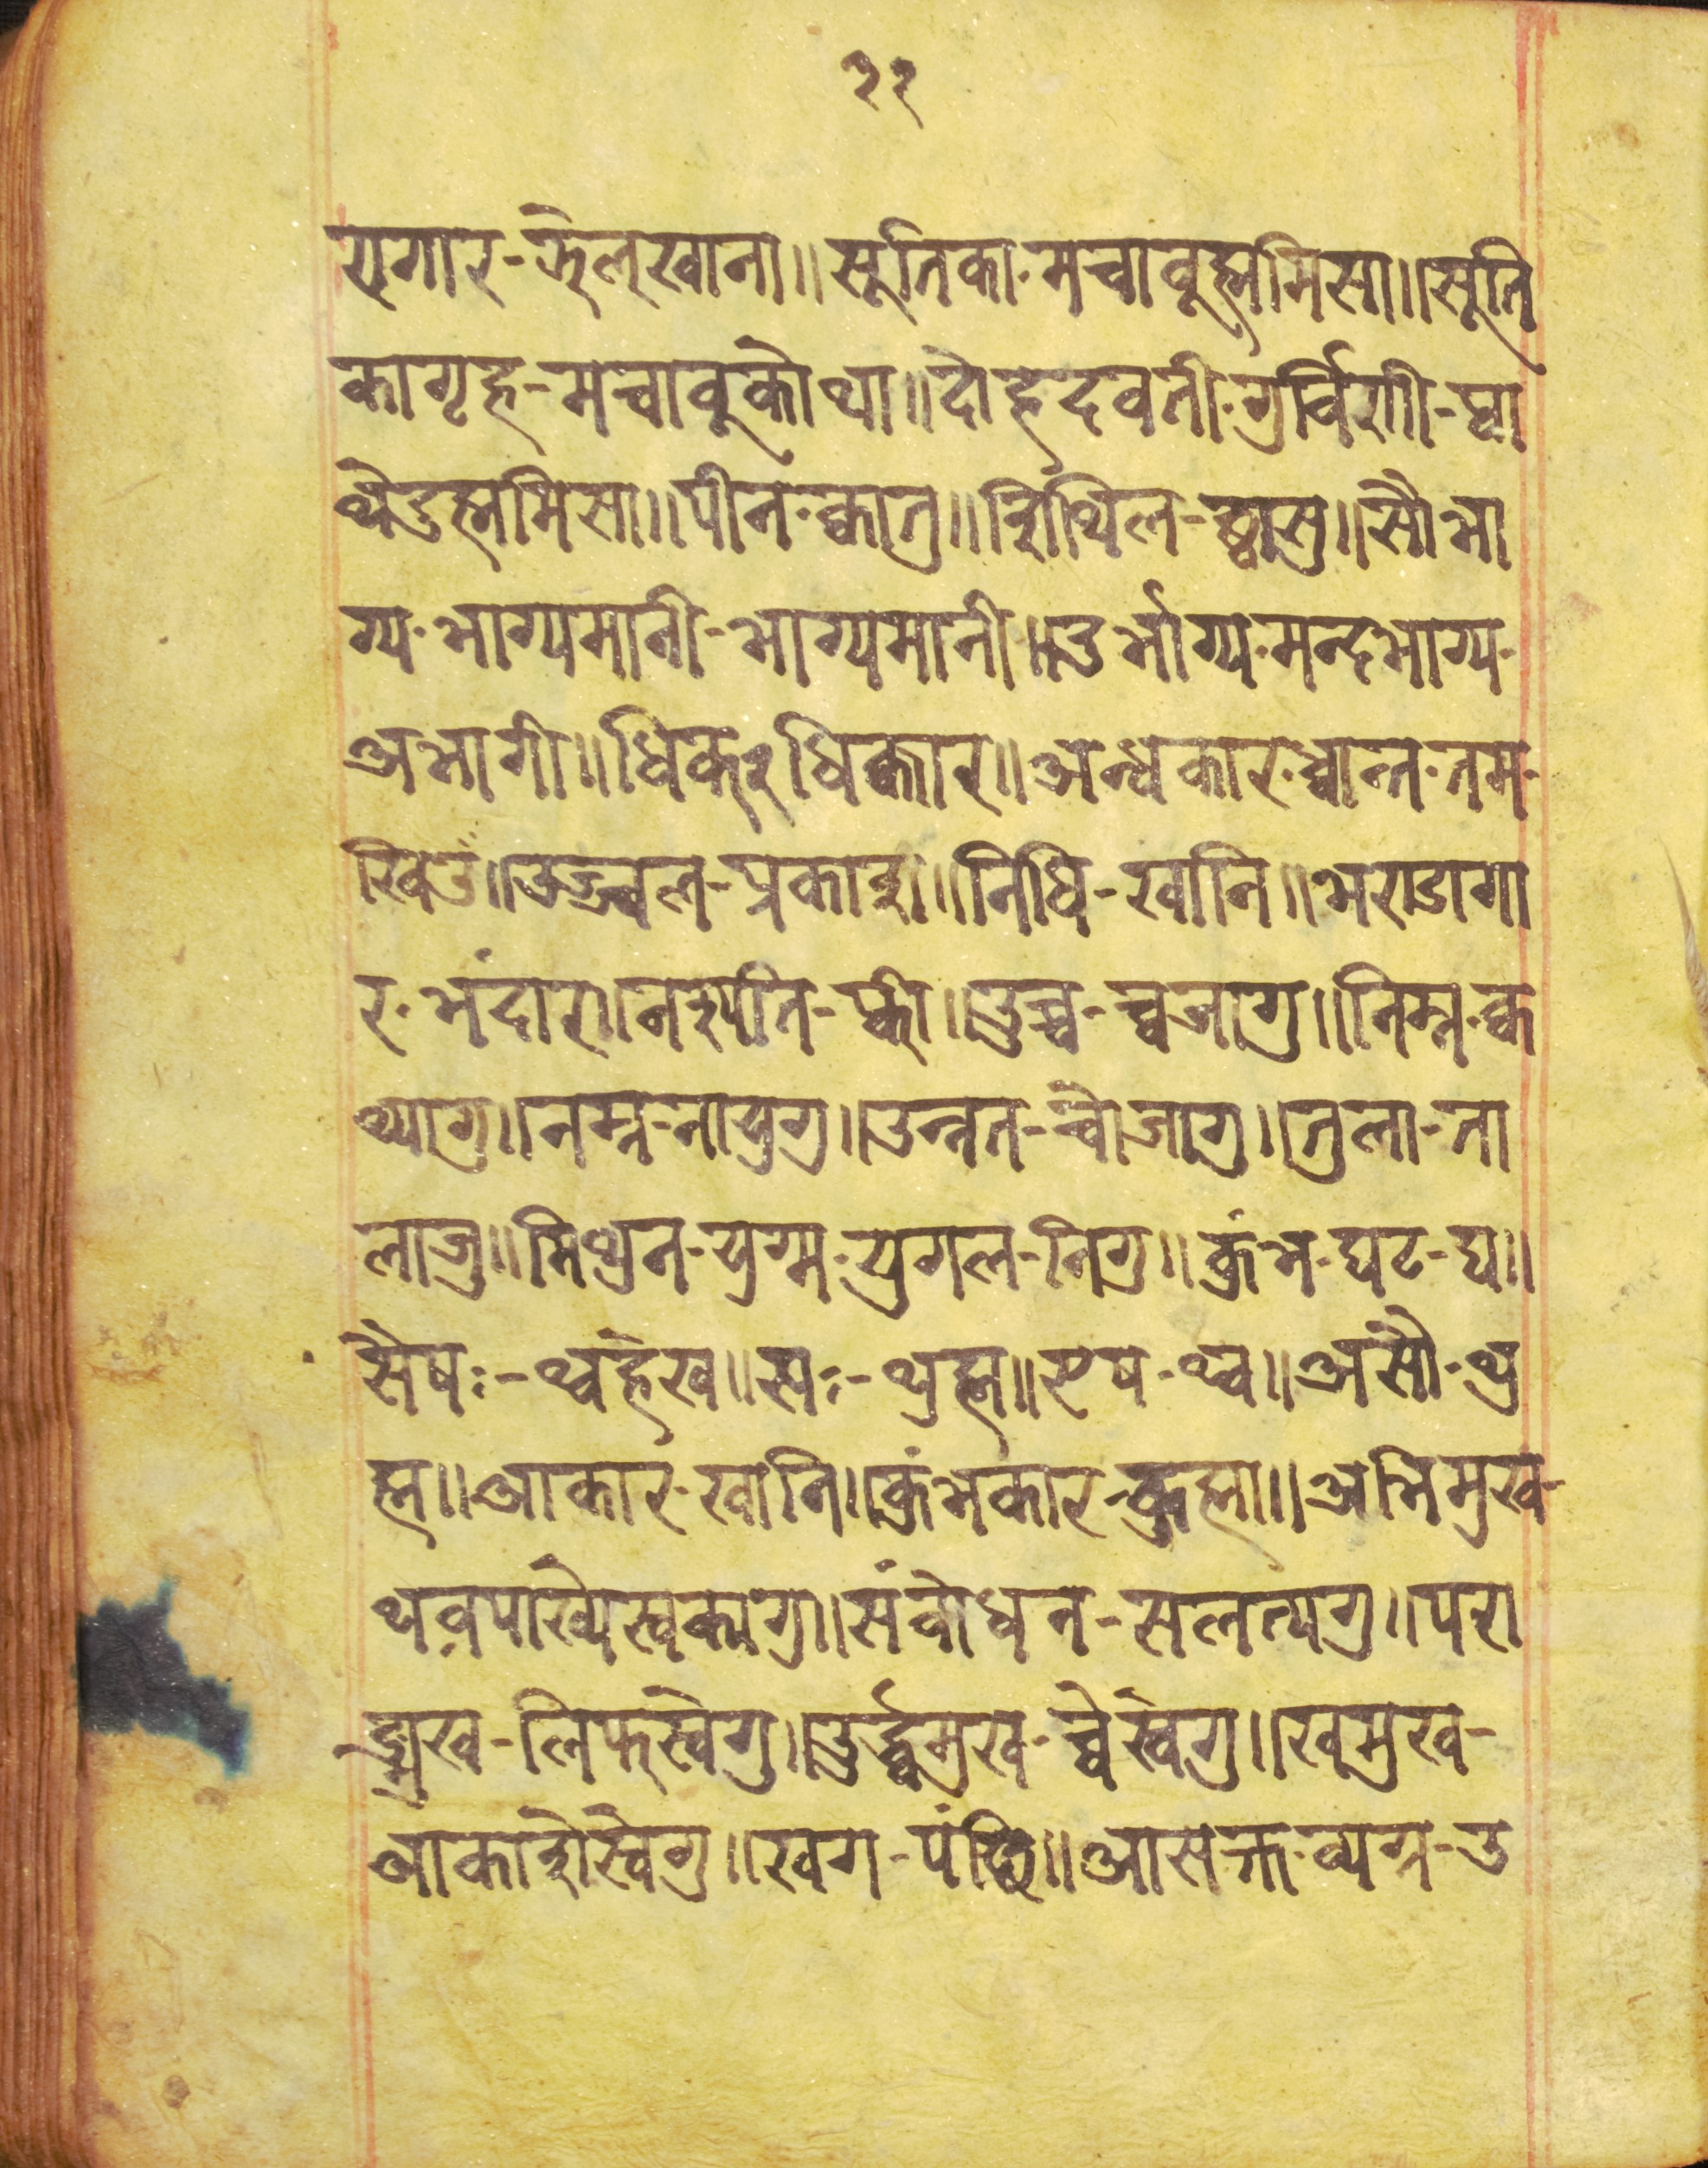 २२
रागार-झेल्खाना॥सूतिका-मचाबूह्ममिसा॥सूति
कागृह-मचाबुकोथा॥दोहदवती-गुर्विणी-प्वा
थेदुह्ममिसा॥पीन-क्वातु॥शिथिल-छ्वासु॥सौभा
ग्य-भाग्यमानी-भाग्यमानी॥दुर्भाग्य-मन्दभाग्य-
अभागी॥धिक्२धिक्कार॥अन्धकार-ध्वान्त-तम-
खिउं॥उज्ज्वल-प्रकाश॥निधि-खानि॥भण्डागा
र-भंदार॥नशपति-प्की॥उच्च-च्वजागु॥निम्न-क्व
थ्यागु॥नम्न-नायुगु॥उन्नत-चोजागु॥तुला-ता
लाजु॥मिथुन-युग्म-युगल-निगु॥कुंभ-घट-घ॥
सैषः-थ्वहेख॥सः-थुह्म॥एष-थ्व॥असौ-थु
ह्म॥आकार-खानि॥कुंभकार-कुह्मा॥अभिमुख-
थवपाख्येस्वकागु॥संबोधन-सलत्यगु॥परा
ङ्मुख-लिफस्वेगु॥उर्द्ध्वमुख-च्वेस्वेगु॥खमुख-
आकाशेस्वेगु॥खग-पंछि॥आसक्त-व्यग्र-उ